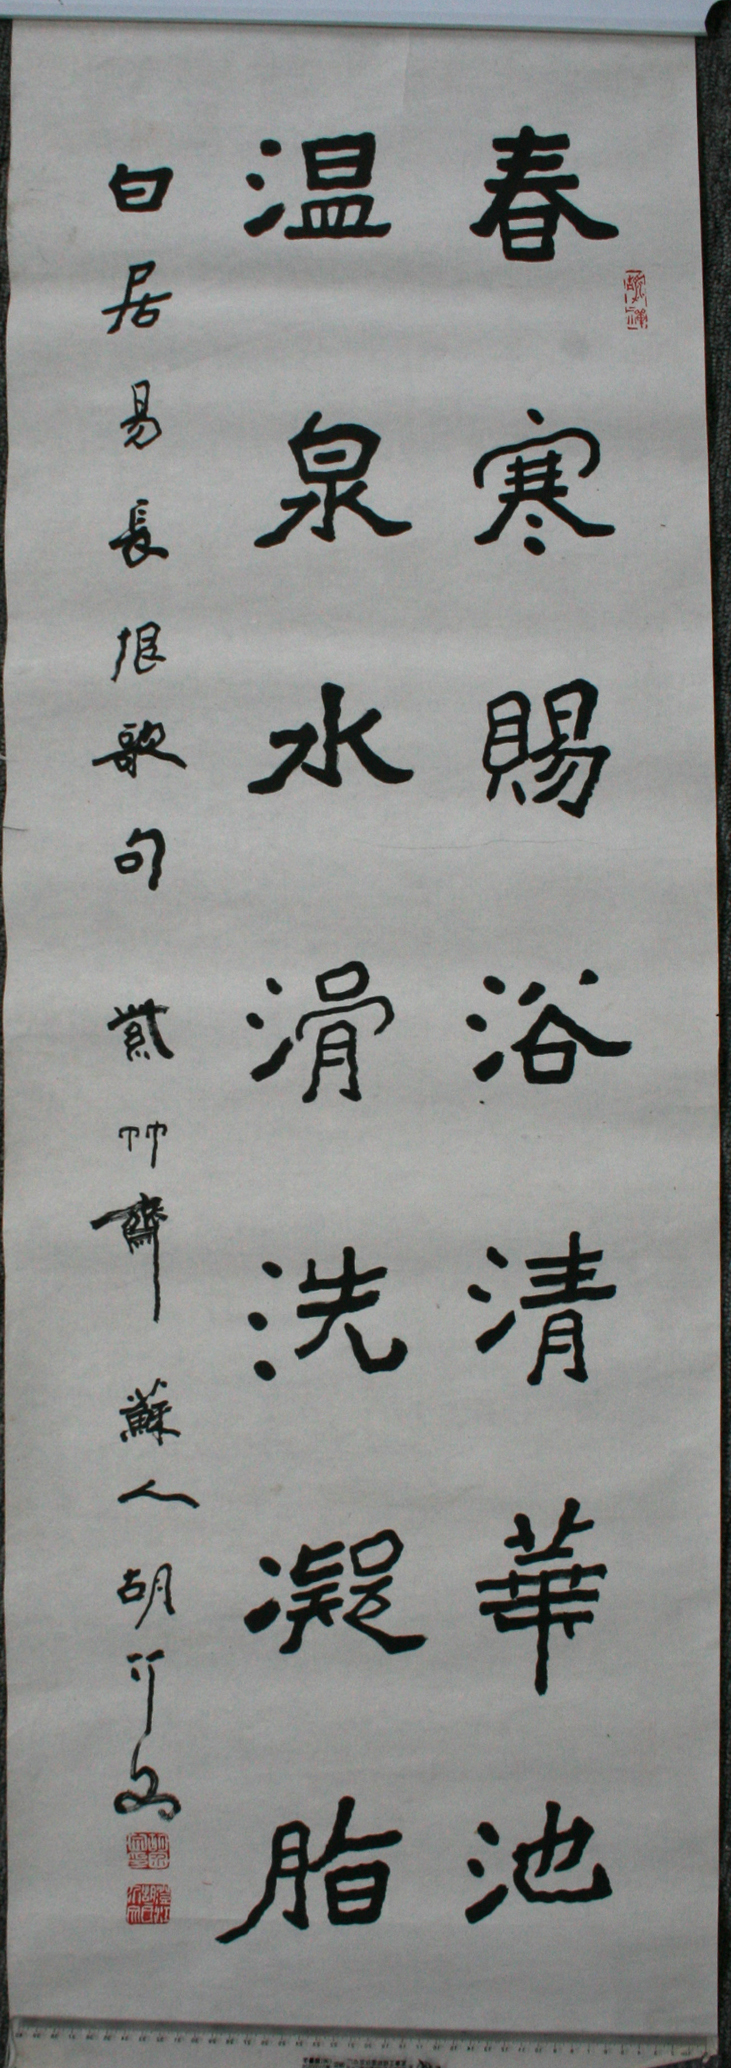 春寒賜浴清華池
温泉水滑洗凝脂
白居易長恨歌句 紫竹齋 蘇人胡